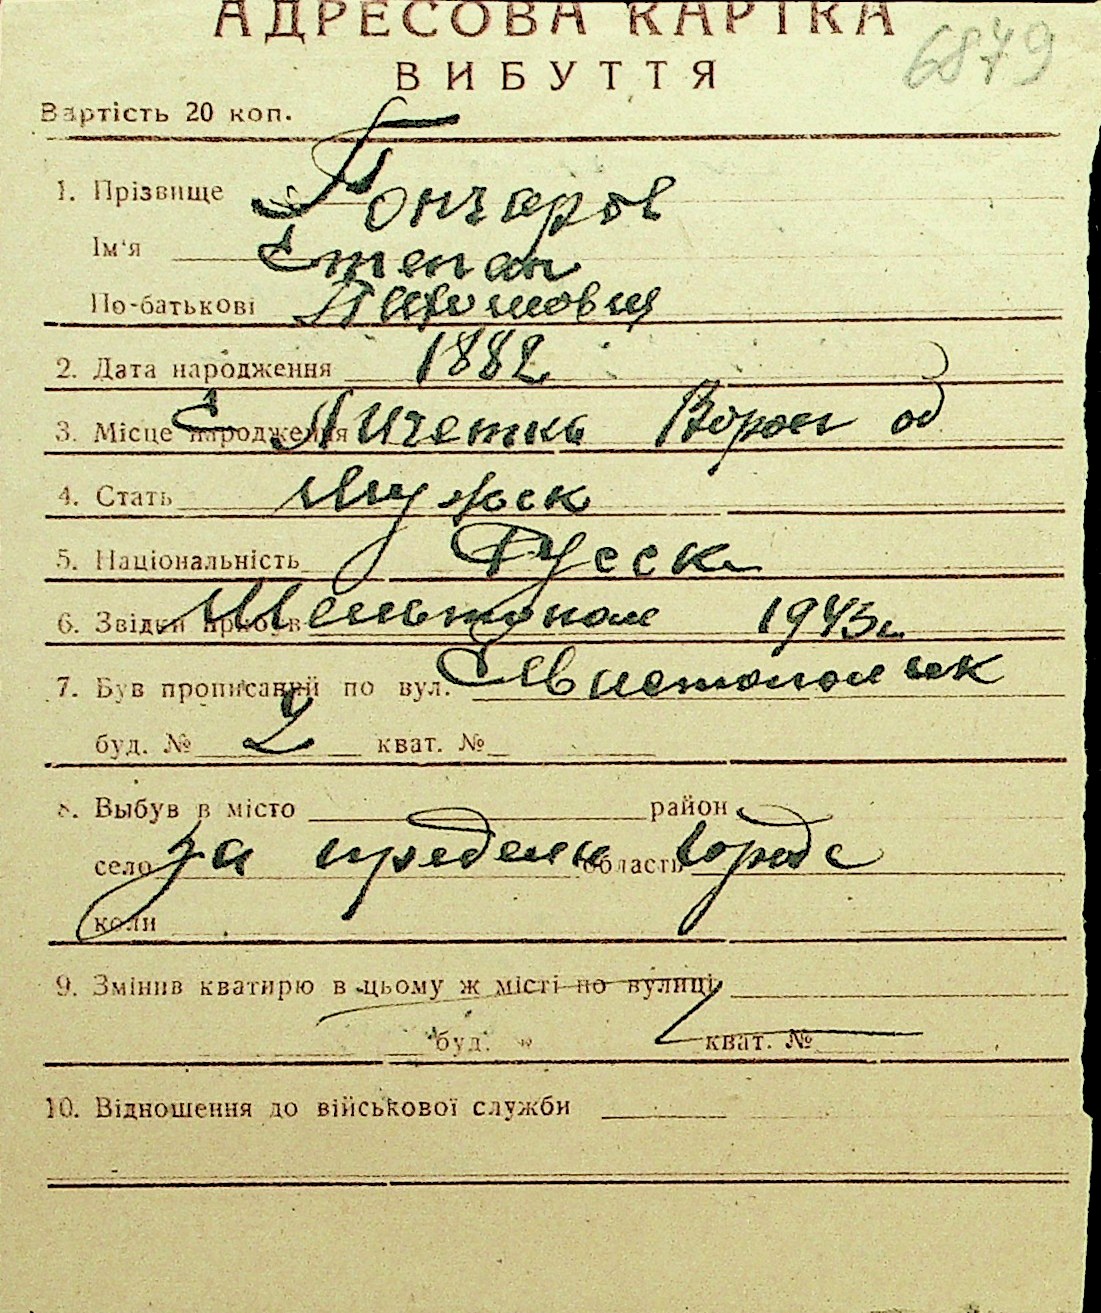 АДРЕСОВА КАРТКА
6879
ВИБУТТЯ
Вартість 20 коп.
1. Прізвище Гончаров
Ім'я Степан
По-батькові
2. Дата народження 1882
3. Місце народження С Ворон об
4. Стать Мужск
5. Національність Русск
6. Звідки прибув 1943г
7. Був прописаний по вул.
буд. № 2 кват. №
8. Выбув в місто район
село за пределы область города
коли
9. Змінив кватирю в цьому ж місті по вулиці
буд. кват. №
10. Відношення до військової служби